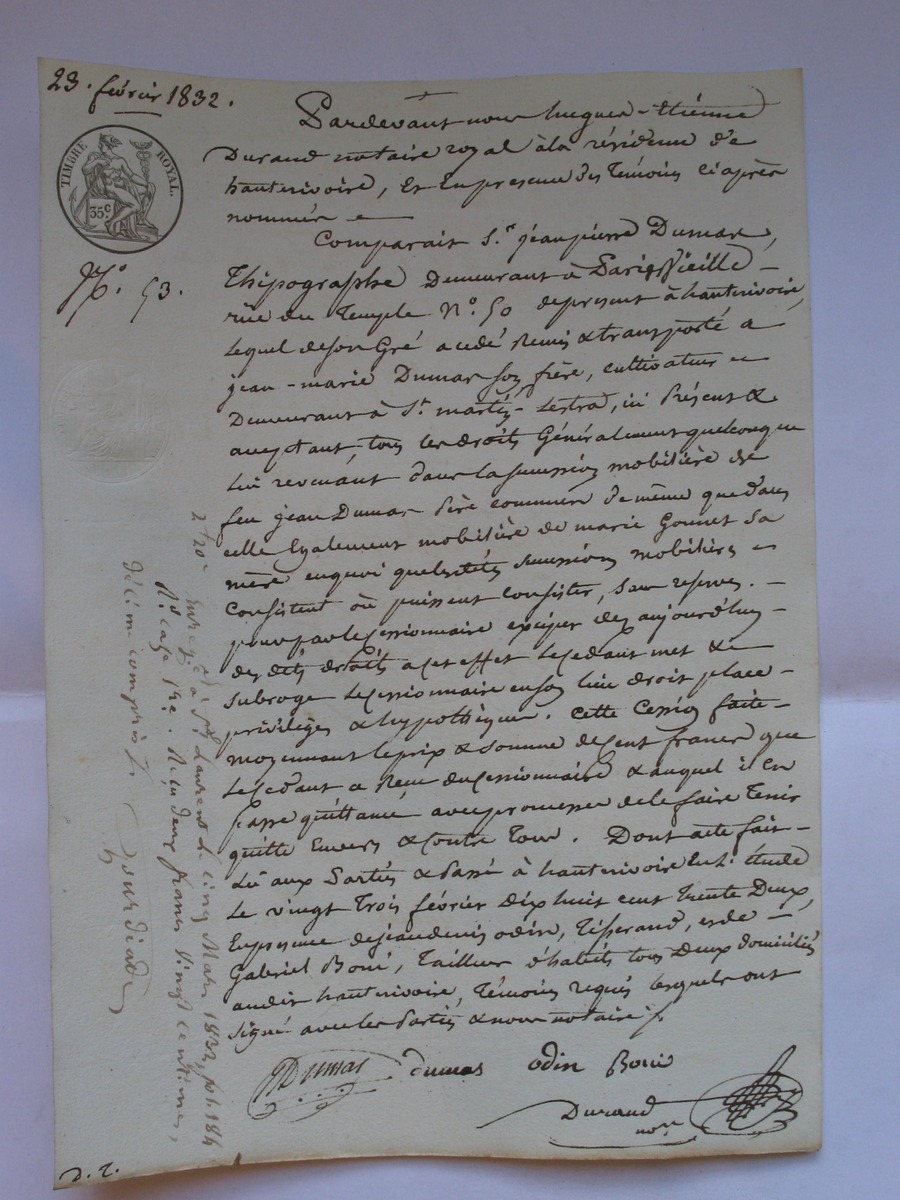 23. février 1832.
TIMBRE ROYAL.
35c
No. 53.
Pardevant nous hugues-étienne
Durand notaire royal à la résidence de
hauterivoire, Et En presence des Témoins ci après
nommés
Comparait Sr. jean pierre Dumas,
Thipographe Demeurant à Paris Vieille
rüe du Temple No. 50 depresent à hauterivoire,
Lequel de son Gré a cédé Remis & transporté a
jean-marie Dumas son frère, cultivateur
Demeurant à St. martin-Lestrat, ici Présent &
acceptant, tous les droits Généralement quelconque
lui revenant dans la succession mobilière de
feu jean Dumas Père commun de même que dans
celle Egalement mobilière de marie Gonnet sa
mère en quoi quelesdités successions mobilières
Consistent où puissent consister, sans reserves.
pour par le cessionnaire exciper des aujourd'huy
des dits droits a cet effet Le cedant met &
subroge Le cessionnaire en son lieu droit place
privilèges & hypothèques. Cette Cession faite
moyennant le prix & somme de Cent francs que
Le cedant a Recu du cessionnaire & auquel il En
passe quittance avec promesse de le faire Tenir
quitte Envers & Contre Tous. Dont acte fait
Lû aux Partiés & Passé à hauterivoire En L'étude
Le vingt Trois février dix huit cent trente Deux
En presence de jean denis odin, Tisserand, et de
Gabriel Boni, Tailleur d'habits tous Deux domiciliés
audit hauterivoire, Témoins requis lesquels ont
signé avec les Partiés & nous notaire
Dumas dumas odin Boni
Durand
nore
2f 20c
Enregé à St Laurent le cinq Mars 1832, fol. 184
Ro case 1re. Reçu deux francs vingt centimes,
décime compris
D. T.